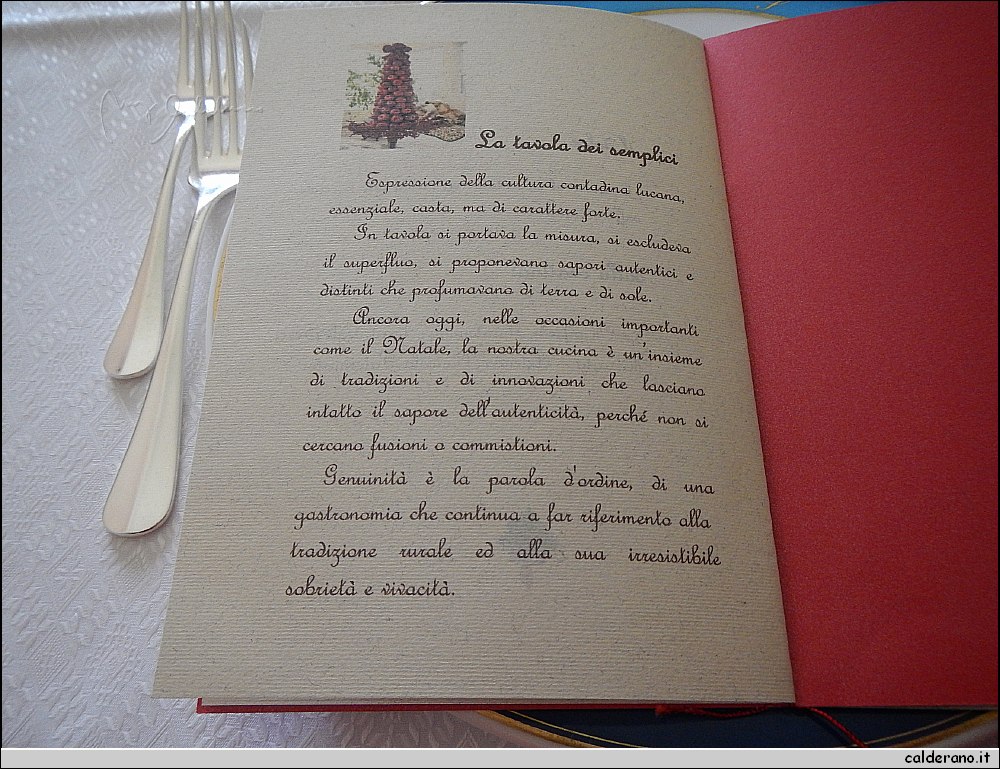 La tavola dei semplici
Espressione della cultura contadina lucana,
essenziale, casta, ma di carattere forte.
In tavola si portava la misura, si escludeva
il superfluo, si proponevano sapori autentici e
distinti che profumavano di terra e di sole.
Ancora oggi, nelle occasioni importanti
come il Natale, la nostra cucina è un'insieme
di tradizioni e di innovazioni che lasciano
intatto il sapore dell'autenticità, perché non si
cercano fusioni o commistioni.
Genuinità è la parola d'ordine, di una
gastronomia che continua a far riferimento alla
tradizione rurale ed alla sua irresistibile
sobrietà e vivacità.
calderano.it